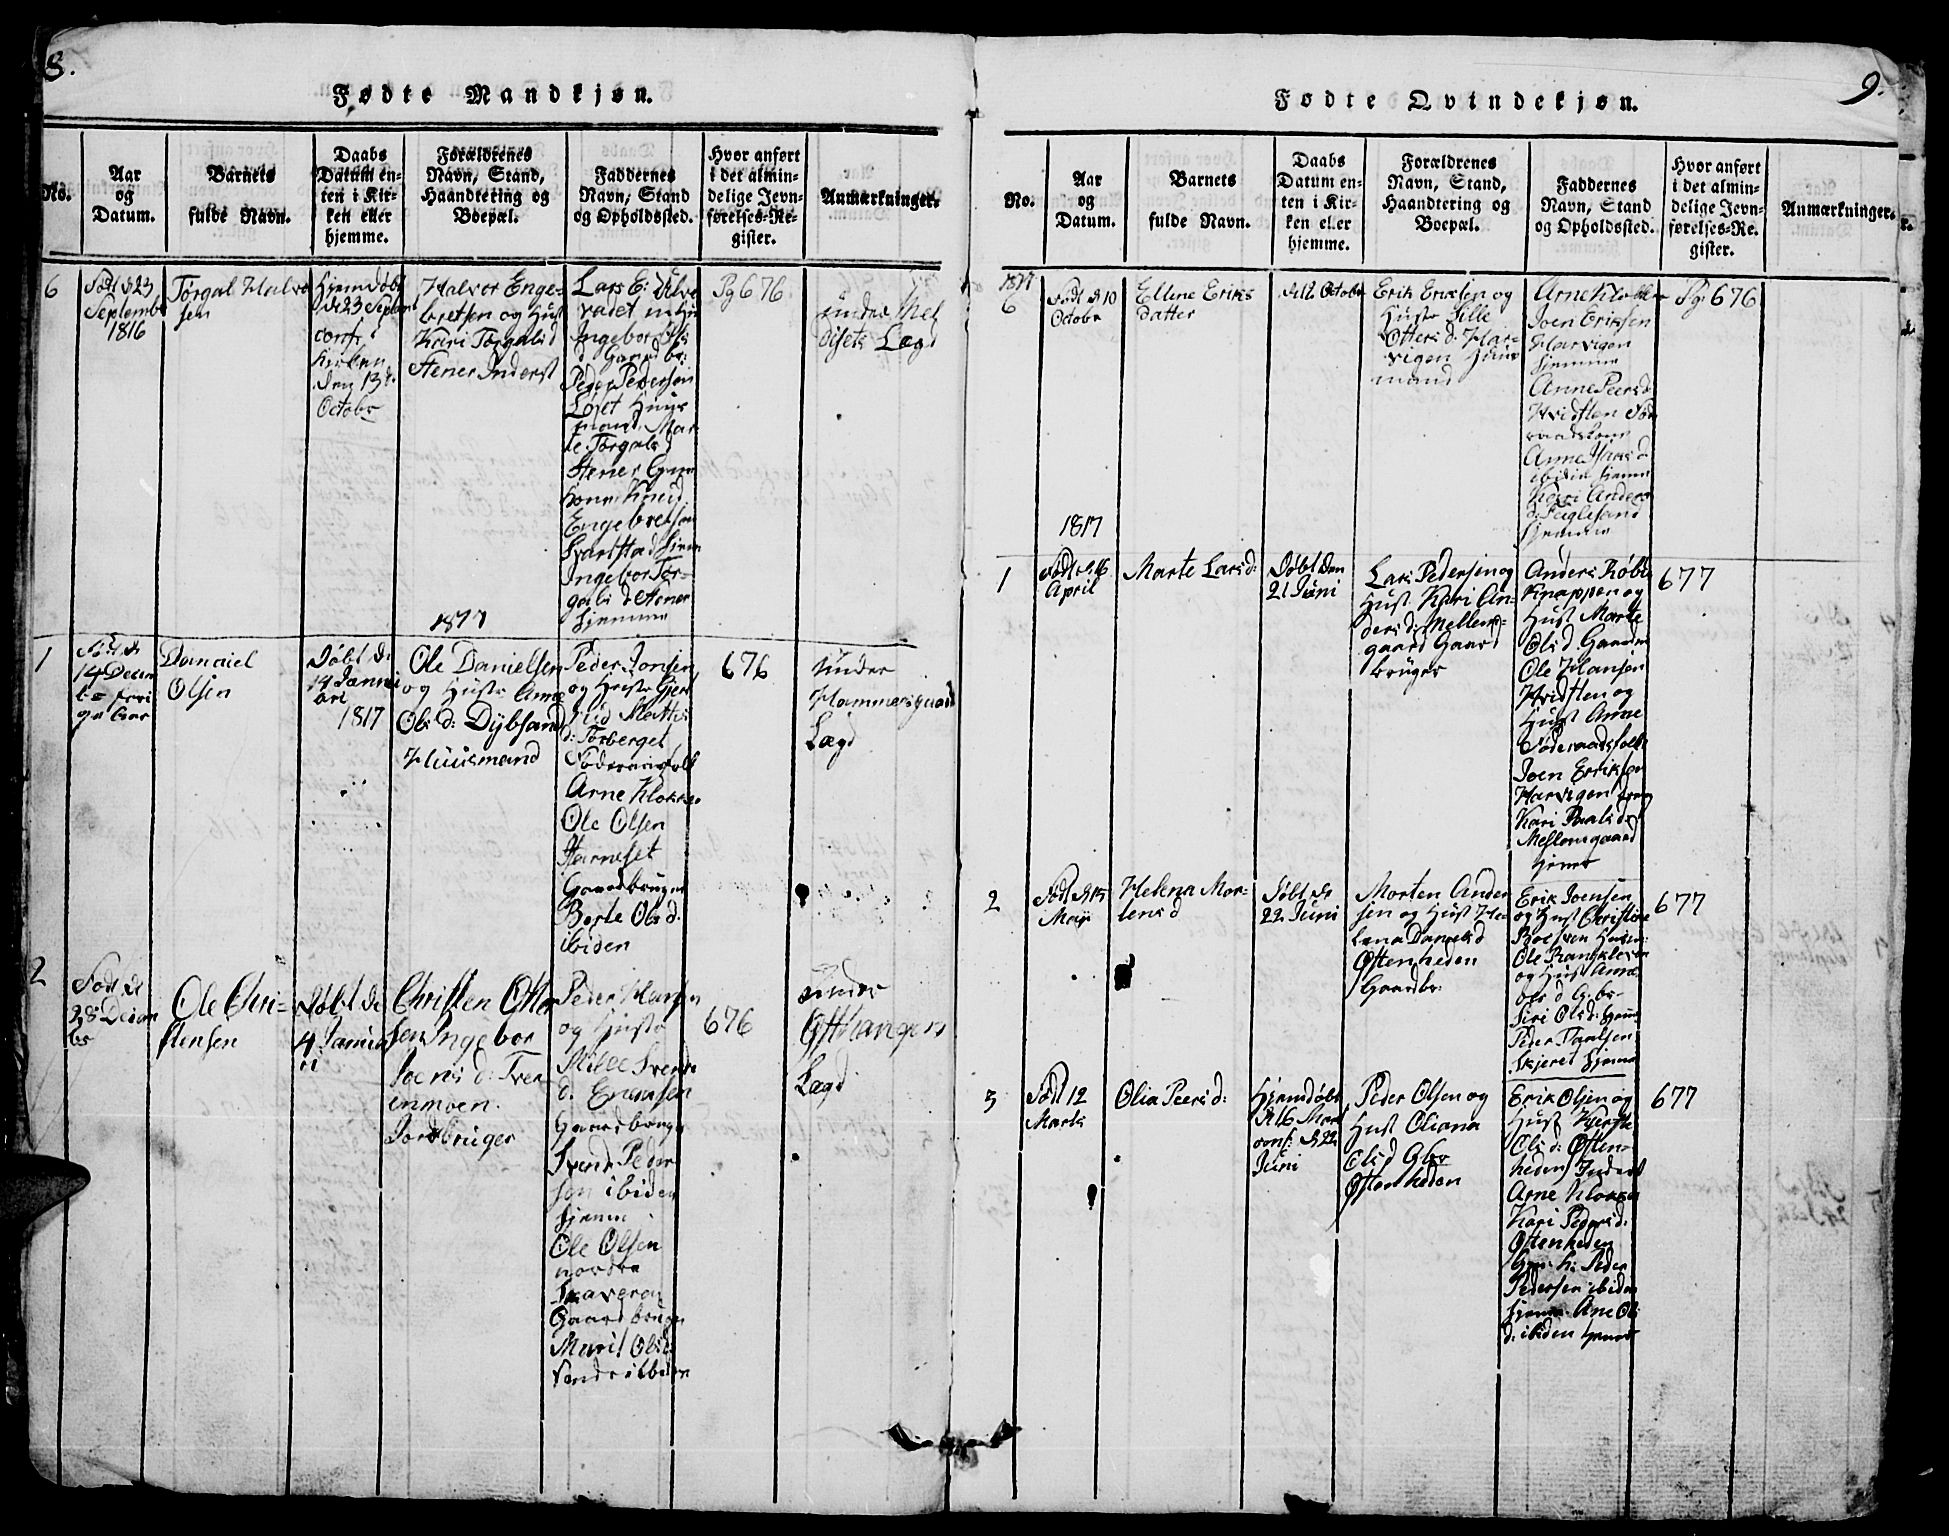 8.
Fødte Mandkjøn.
No.
Aar
og
Datum.
Barnets
fulde Navn.
Daabs
Datum en-
ten i Kir-
ken eller
hjemme.
Forældrenes
Navn, Stand,
Haandtering og
Boepæl.
Faddernes
Navn, Stand
og Opholdssted.
Hvor anført
i det almin-
delige Jevn-
førelses-Re-
gister.
Anmærkninger.
6
Født d 23
Septembr
1816
Torgal Halvor
sen
Hjemdøbt
d 23 Septbr
conf. i
Kirken
den 13de
Octobr
Halvor Enge-
bretsen og Hust
Kari Torgalsd
Stener Inderst
Lars E:
Ingebor Ols
Gaardbr:
Peder Pedersen
Løset Huus
mand Mar
te Torgalsd
Stener
Kone Knud
Engebretsen
Svartstad hjem
Ingebor Tor-
gals d Stener
hjemme
Pg 676
under
Lægd
1817
1
Født d
14 Decem
Damaiel
Olsen
Døbt d:
14 Januu
ari
1817
Ole Danielsen
og Huste Anne
Ols d: Dybsand
Huusmand
Peder Jonsen
og Huste Gjert
rud Mattis
d: Torberget
Føderaadsfolk
Arne Klokker
Ole Olsen
Harneset
Gaardbruger
Berte Ols d.
ibiden
676
under
Hammersgaard
Lægd
2
Født d
28 Decem
br
Ole Chri-
stensen
Døbt d:
4 Januu
ri
Christen Otter
sen Ingebor
Joens d: Tven
enmoen.
Jordbruger
Peder Hansen
og Huste
Mille Svends
d.
Gaardbruger
Svend Peder
sen ibiden
hjemm
Ole Olsen
nordre
Skaveren
Gaardbruger
Marit Ols d:
676
under
Lægd
9.
Fødte Qvindekjøn.
No.
Aar
og
Datum.
Barnets
fulde Navn.
Daabs
Datum en-
ten i Kir-
ken eller
hjemme.
Forældrenes
Navn, Stand,
Haandtering og
Boepæl.
Faddernes
Navn, Stand
og Opholdssted.
Hvor anført
i det almin-
delige Jevn-
førelses-Re-
gister.
Anmærkninger.
6
Født d 10
Octobr
Ellene Eriks
datter
d 12 Octobr
Erik Eriksen og
Huste Sille
Otters d: Har-
vigen Huus
mand
Arne Klokker
Joen Eriksen
Harvigen
hjemme
Anne Peersd
Kvidtlen Føde
raadskone
Anne Hans d
ibiden hjemme
Kari Anders
d:
hjemme
Pg 676
1817
1
Født d. 16
April
Marte Larsd:
Døbt den
21 Juni
Lars Pedersen og
Hust Kari An-
ders d: Mellem-
gaard Gaard
bruger
Anders Købe
Knappen og
Hust Marte
Ols d. Gaardm
Ole Hansen
Kvidtlen og
Hust Anne
Føderaadsfolk
Joen Eriksen
Harvigen
Kari Paals d:
Mellemgaard
hjemme
677
2
Født d. 15
Mai
Helena Mor-
tensd
Døbt d
22 Juni
Morten Ander
sen og Hust He
lena Daniels d
Øftenheden
Gaardbr:
Erik Joensen
og Hust Christine
Ole
og Hust Anne
Ols d G.br
Siri Ols d: hjem
Peder Paalsen
Skjeret hjemm
677
3
Født 12
Marts
Olia Peers d:
Hjemdøbt
d 16 Mart
conf: d 22
Juni
Peder Olsen og
Hust Oliana
Ols d Gbr
Øftenheden
Erik Olsen og
Hust Kjersti
Ols d: Øften-
heden Inderst
Arne Klokker
Kari Peders d:
Øftenheden
Peder
Pedersen ibiden
hjemm. Ane Ols
d: ibiden hjemm
677